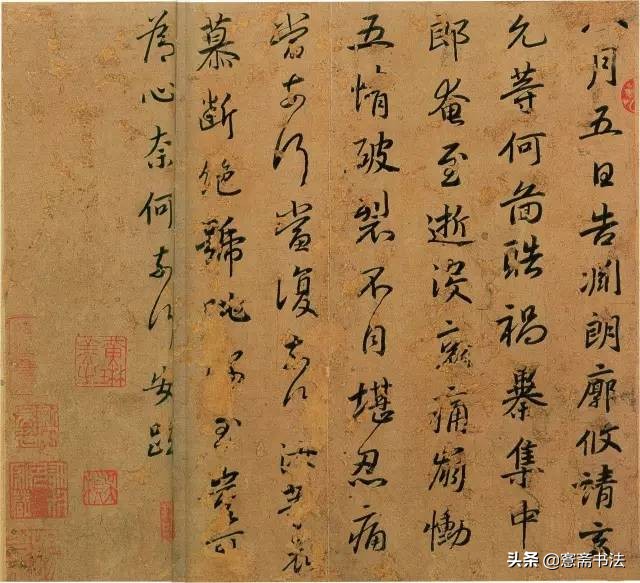 八月五日告渕朗廓攸靖玄
允等何圖酷禍暴集中
郎奄至逝沒哀痛崩慟
五情破裂不自堪忍痛
當奈何當復奈何汝等哀
慕斷絕號咷深至豈可
為心奈何奈何安疏
黃琳美之
头条 @愙斋书法